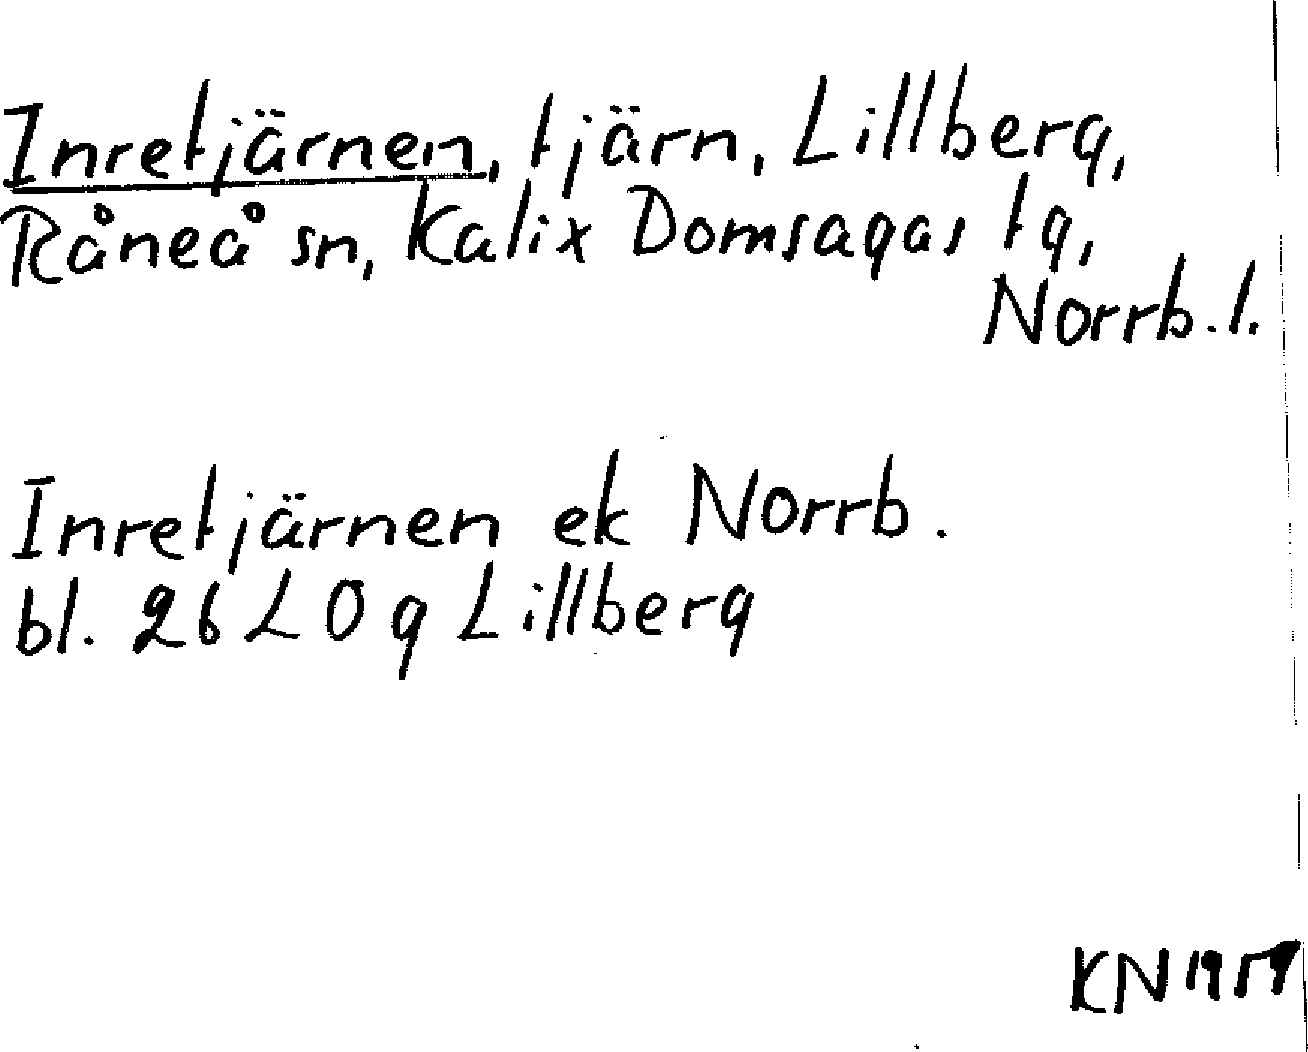 Inretjärnen, tjärn, Lillberg,
Råneå sn, Kalix Domsagas tg,
Norrb. l.
Inretjärnen ek Norrb.
bl. 26 L 0 g Lillberg
KN 1959